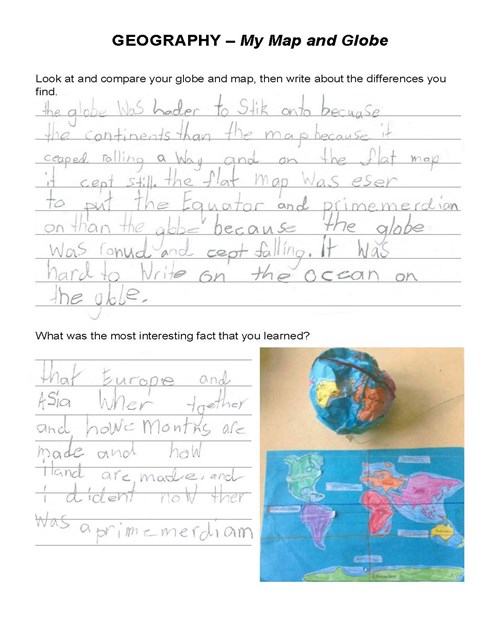 GEOGRAPHY – My Map and Globe
Look at and compare your globe and map, then write about the differences you
find.
the globe was hoder to Stik onto becuase
the continents than the map because it
ceaped falling a way and on the flat map
it cept still. the flat map was eser
to put the Equator and primemerdian
on than the glbbe because the globe
was ronud and cept falling. It was
hard to write on the ocean on
the glble.
What was the most interesting fact that you learned?
that Europe and
ASia wher together
and howe Months are
made and how
iland are made. and
i dident now ther
was a primemerdiam